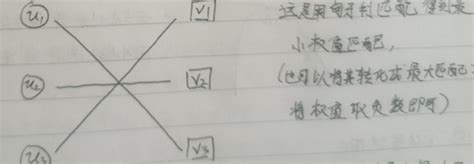 u1 v1 这是用匈牙利匹配 得到最
小权值匹配,
u2 v2 (也可以将其转化成最大匹配:
将权值取负数即可)
u3 v3